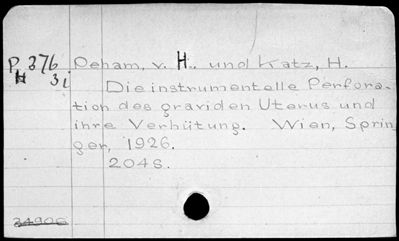 P 376 Peham, v. H. und Katz, H.
H 3i
Die instrumentelle Perfora-
tion des graviden Uterus und
ihre Verhütung. Wien, Sprin
ger, 1926.
204s.
34906